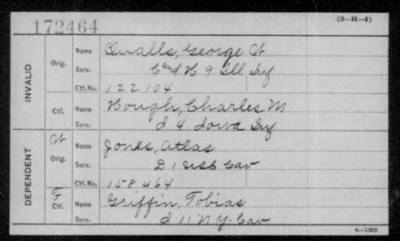 172464
(3-H-4)
INVALID
Orig.
Name Qualls, George W
Serv. H 9 Ill Inf
Ctf. No. 122104
Ctf.
Name Hough, Charles M
Serv. d 4 Iowa Inf
DEPENDENT
W
Orig.
Name Jones, Atlas
Serv. D 1 USC Cav
Ctf. No. 158,464
Ctf.
Name Griffin, Tobias
Serv. d 11 N.Y. Cav